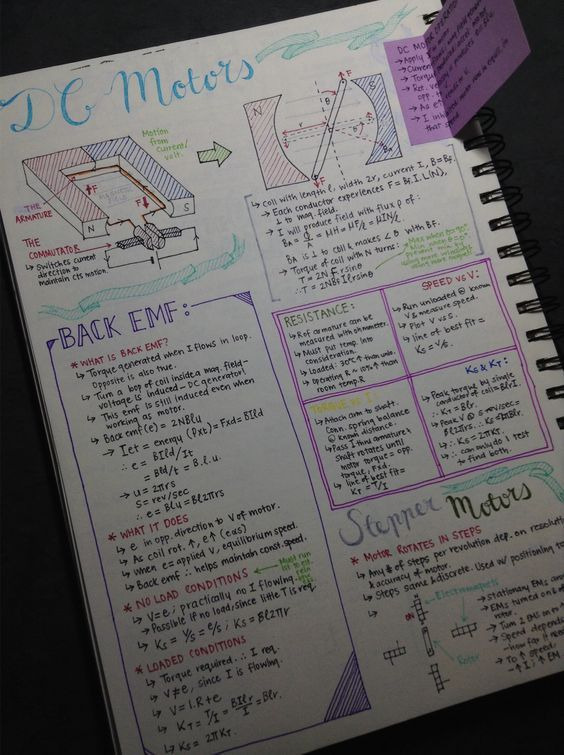 DC Motors
Motion
from
Current/
volt.
N
S
F
F
r
θ
θ
F
BA
THE
ARMATURE
MAGNETIC
FIELD
F
F
N
S
THE
COMMUTATOR
↳ Switches current
direction to
maintain cts motion.
DC MO
→ Apply
→ Current
→ Torque
→ Rot.
opp.
→ As
→ I
that speed
→ coil with length l, width 2r, current I, B = BF.
→ Each conductor experiences F = BF.I.L(N),
⊥ to mag. field.
→ I will produce field with flux φ of:
BA is ⊥ to coil & makes ∠θ with BF.
→ Torque of coil with N turns:
T = 2N F.r sinθ
∴ T = 2NBFIlr sinθ
Max when θ=90°
Min when θ=0°
BACK EMF:
* WHAT IS BACK EMF?
↳ Torque generated when I flows in loop.
Opposite is also true.
↳ Turn a loop of coil inside a mag. field -
voltage is induced - DC generator!
↳ This emf is still induced even when
working as motor.
↳ Back emf (e) = 2NBlu
→ Iet = energy (Pxt) = Fxd = BIld
∴ e = BIld/It
= Bld/t = B.l.u.
→ u = 2πrs
s = rev/sec
∴ e = Blu = Bl2πrs
* WHAT IT DOES
↳ e in opp. direction to V of motor.
→ As coil rot. ↑, e↑ (eαs)
↳ When e = applied V, equilibrium speed.
↳ Back emf ∴ helps maintain const. speed.
* NO LOAD CONDITIONS
↳ V = e; practically no I flowing
→ Possible if no load, since little T is req.
↳ Ks = V/s = e/s; Ks = Bl2πr
* LOADED CONDITIONS
↳ Torque required ∴ I req.
↳ V ≠ e, since I is flowing.
↳ V = I.R + e
↳ KT = T/I = BIlr/I = Blr.
↳ Ks = 2πKT.
RESISTANCE:
↳ R of armature can be
measured with ohmmeter.
↳ Must put temp. into
consideration.
↳ Loaded: 30°C↑ than unlo.
↳ Operating R ≈ 10%↑ than
room temp. R
SPEED VS V:
↳ Run unloaded @ known
V & measure speed.
↳ Plot V vs s.
↳ line of best fit =
Ks = V/s.
TORQUE VS I:
↳ Attach arm to shaft.
Conn. spring balance
@ known distance.
↳ Pass I thru armature &
shaft rotates until
motor torque = opp.
torque, Fxd.
↳ line of best fit =
KT = T/I
KS & KT:
↳ Peak torque by single
conductor of coil = BlrI.
∴ KT = Blr.
↳ Peak V @ s rev/sec =
Bl2πrs. ∴ Ks = 2πBlr.
↳ ∴ Ks = 2πKT.
↳ ∴ can only do 1 test
to find both.
Stepper Motors
* MOTOR ROTATES IN STEPS
↳ Any # of steps per revolution dep. on resolution
& accuracy of motor.
↳ Steps same & discrete. Used w/ positioning
Electromagnets
ON
Rotor
→ Stationary EMs
→ EMs turned on &
rotor.
→ Turn 2 EMs on
→ Speed
- how far it
→ To ↑ speed:
- ↑ I; ↑ EM